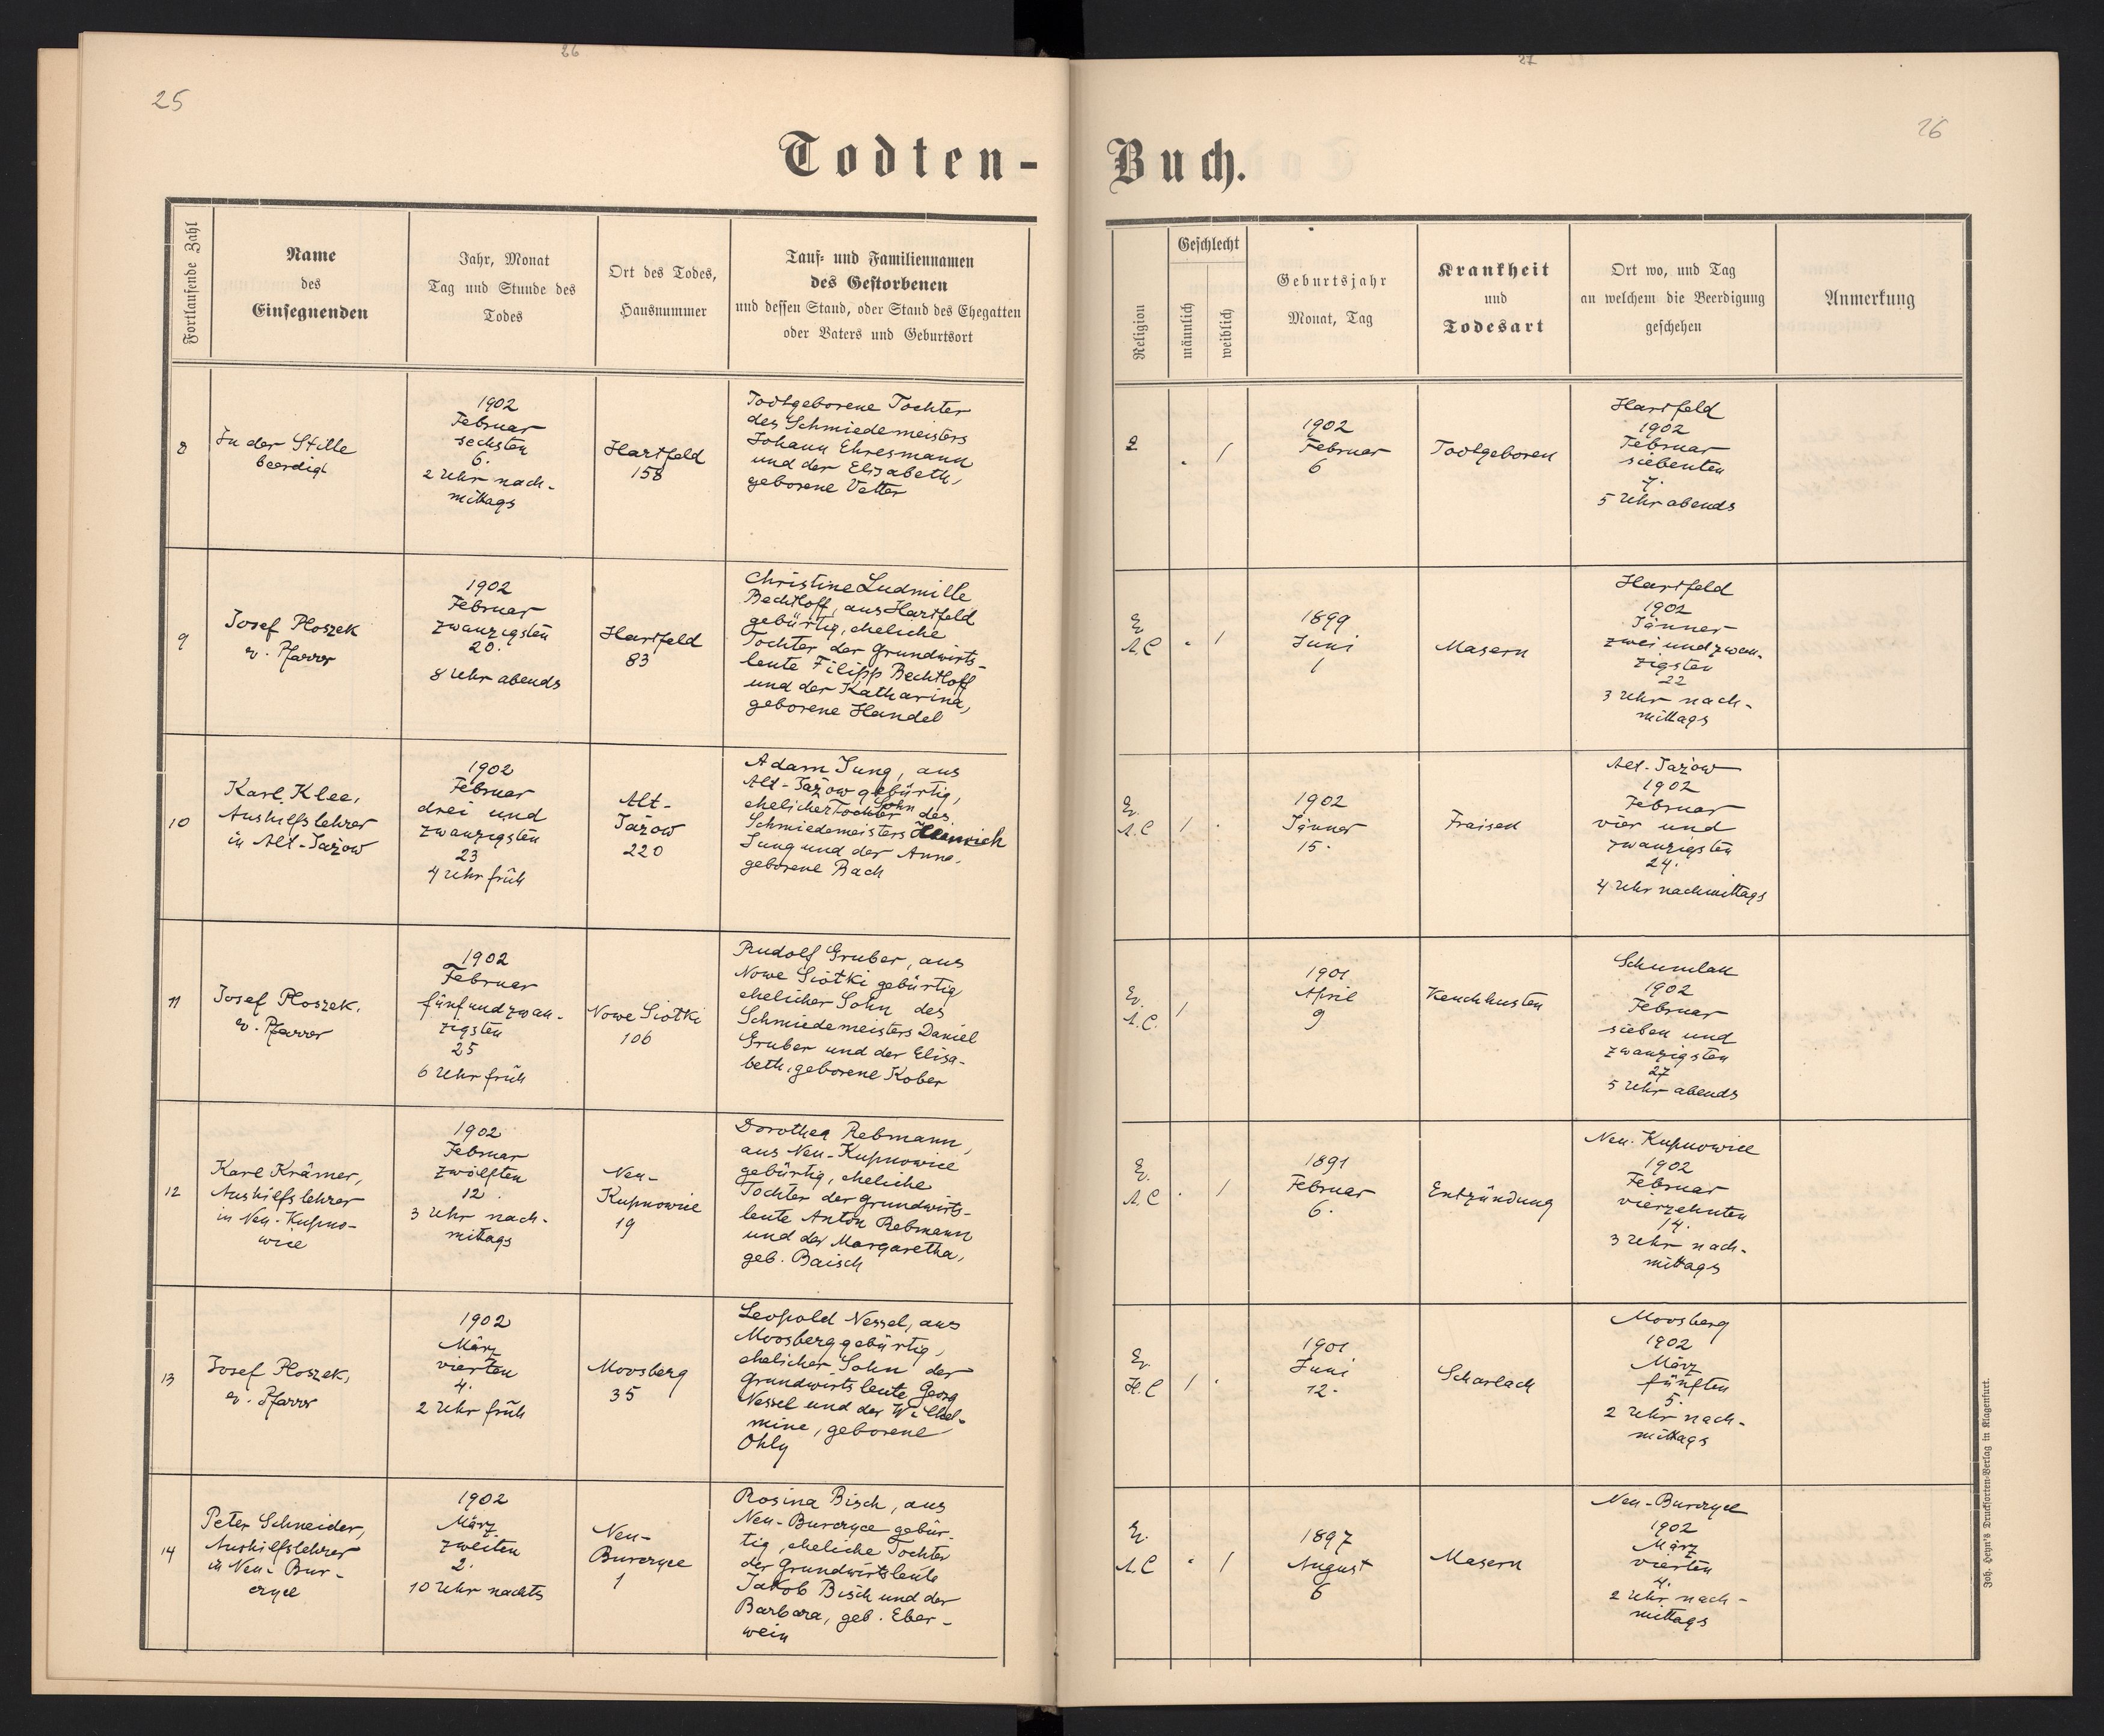 26
27
25
26
Todten-
Buch.
Fortlaufende Zahl
Name
des
Einsegnenden
Jahr, Monat
Tag und Stunde des
Todes
Ort des Todes,
Hausnummer
Tauf- und Familiennamen
des Gestorbenen
und dessen Stand, oder Stand des Ehegatten
oder Vaters und Geburtsort
Religion
Geschlecht
männlich
weiblich
Geburtsjahr
Monat, Tag
Krankheit
und
Todesart
Ort wo, und Tag
an welchem die Beerdigung
geschehen
Anmerkung
8
In der Stille
beerdigt
1902
Februar
sechsten
6.
2 Uhr nach-
mittags
Hartfeld
158
Todtgeborene Tochter
des Schmiedemeisters
Johann Ehresmann
und der Elisabeth,
geborene Vetter
. 1
1902
Februar
6
Todtgeboren
Hartfeld
1902
Februar
siebenten
7.
5 Uhr abends
9
Josef Ploszek
ev. Pfarrer
1902
Februar
zwanzigsten
20.
8 Uhr abends
Hartfeld
83
Christine Ludmille
Bechtloff, aus Hartfeld
gebürtig, eheliche
Tochter der Grundwirts-
leute Filipp Bechtloff
und der Katharina,
geborene Handel
Ev.
A.C
. 1
1899
Juni
1
Masern
Hartfeld
1902
Jänner
zweiundzwan-
zigsten
22
3 Uhr nach-
mittags
10
Karl Klee,
Aushilfslehrer
in Alt-Jażow
1902
Februar
drei und
zwanzigsten
23
4 Uhr früh
Alt-
Jażow
220
Adam Jung, aus
Alt-Jażow gebürtig,
ehelicher Tochter Sohn des
Schmiedemeisters Heinrich
Jung und der Anna,
geborene Bach
Ev.
A.C
1 .
1902
Jänner
15.
Fraisen
Alt-Jażow
1902
Februar
vier und
zwanzigsten
24.
4 Uhr nachmittags
11
Josef Ploszek,
ev. Pfarrer
1902
Februar
fünfundzwan-
zigsten
25
6 Uhr früh
Nowe Siótki
106
Rudolf Gruber, aus
Nowe Siótki gebürtig
ehelicher Sohn des
Schmiedemeisters Daniel
Gruber und der Elisa-
beth, geborene Kober
Ev.
A.C.
1
1901
April
9
Keuchhusten
Schumlau
1902
Februar
sieben und
zwanzigsten
27
5 Uhr abends
12
Karl Krämer,
Aushilfslehrer
in Neu-Kupno-
wice
1902
Februar
zwölften
12.
3 Uhr nach-
mittags
Neu-
Kupnowice
19
Dorothea Rebmann,
aus Neu-Kupnowice
gebürtig, eheliche
Tochter der Grundwirts-
leute Anton Rebmann
und der Margaretha,
geb. Baisch
Ev.
A.C
. 1
1891
Februar
6.
Entzündung
Neu-Kupnowice
1902
Februar
vierzehnten
14.
3 Uhr nach-
mittags
13
Josef Ploszek,
ev. Pfarrer
1902
März
vierten
4.
2 Uhr früh
Moosberg
35
Leopold Nessel, aus
Moosberg gebürtig,
ehelicher Sohn der
Grundwirtsleute Georg
Nessel und der Wilhel-
mine, geborene
Ohly
Ev.
H.C
1 .
1901
Juni
12.
Scharlach
Moosberg
1902
März
fünften
5.
2 Uhr nach-
mittags
14
Peter Schneider,
Aushilfslehrer
in Neu-Bur-
czyce
1902
März
zweiten
2.
10 Uhr nachts
Neu-
Burczyce
1
Rosina Bisch, aus
Neu-Burczyce gebür-
tig, eheliche Tochter
der Grundwirtsleute
Jakob Bisch und der
Barbara, geb. Eber-
wein
Ev.
A.C
. 1
1897
August
6
Masern
Neu-Burczyce
1902
März
vierten
4.
2 Uhr nach-
mittags
Joh. Heyn's Drucksorten-Verlag in Klagenfurt.